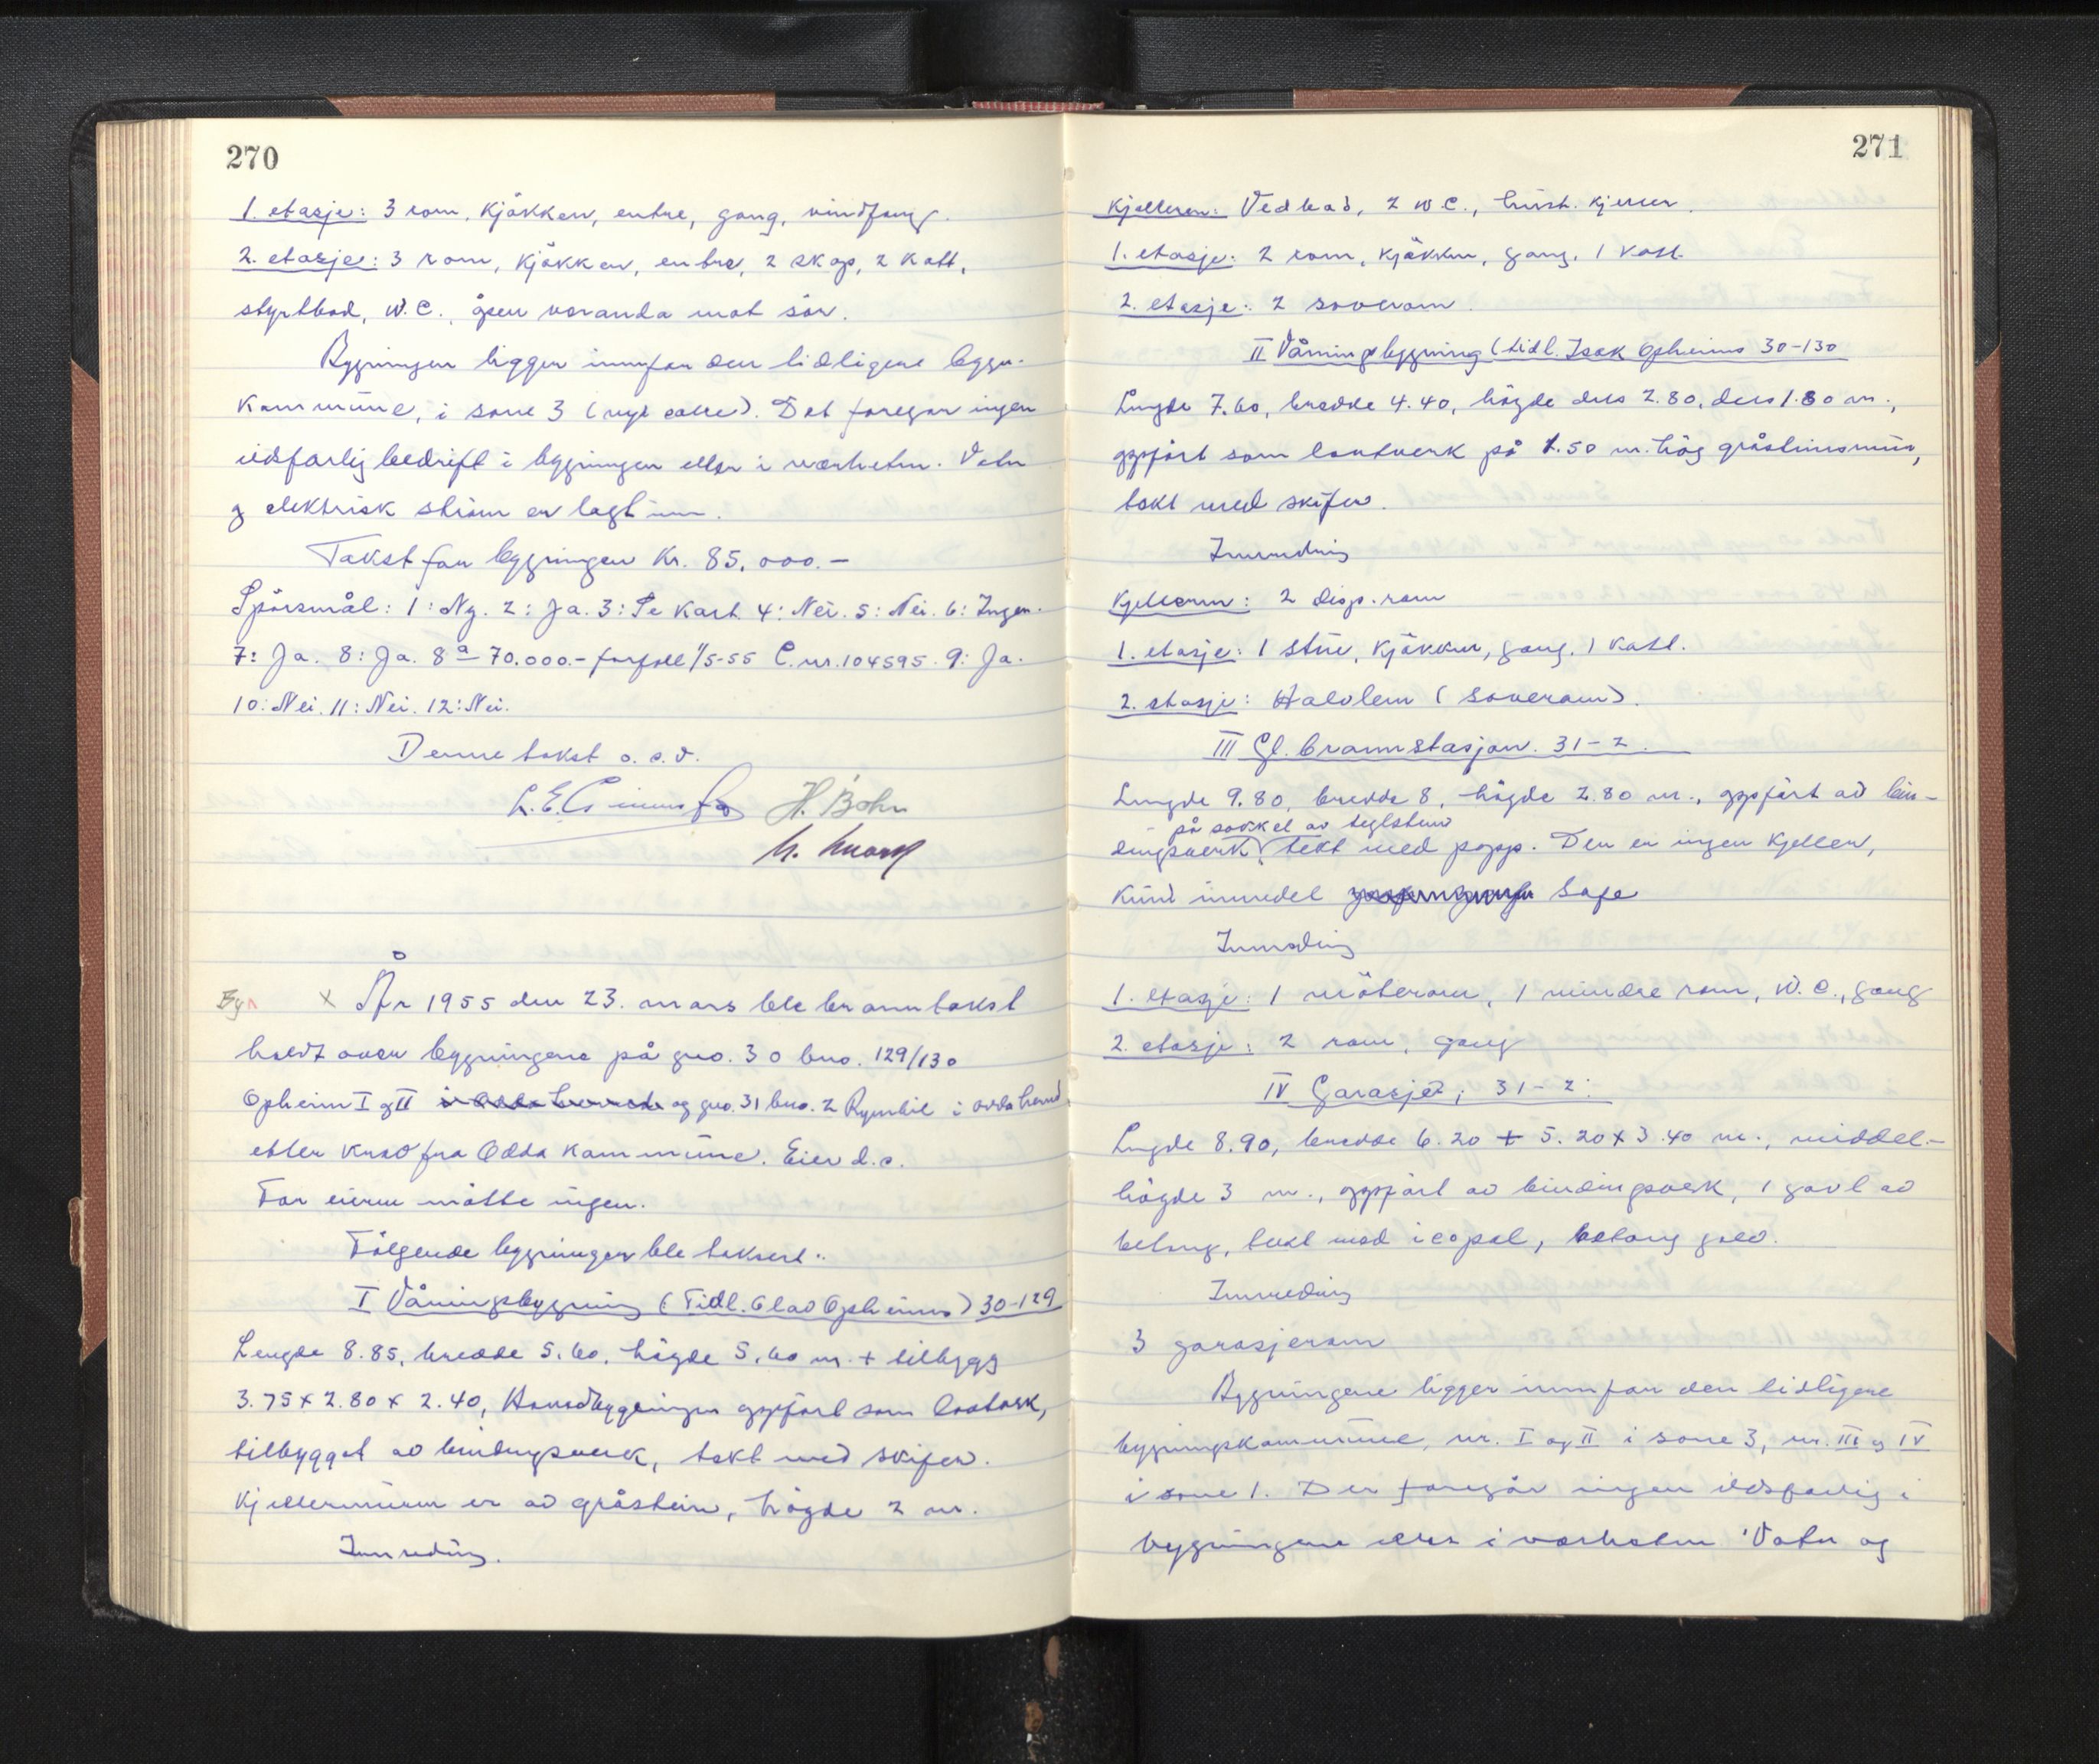 270
1. etasje: 3 rom, kjökken, entre, gang, vindfang.
2. etasje: 3 rom, kjökken, entre, 2 skap, 2 kott,
styrtbad, W.C., åpen veranda mot sör.
Bygningen ligger innfor den tidligere bygn.
kommune, i sone 3 (nye soner). Det foregår ingen
ildsfarlig bedrift i bygningen eller i nærheten. Vatn
og elektrisk ström er lagt inn.
Takst for bygningen kr. 85.000.-
Spörsmål: 1: Ny. 2: Ja. 3: Se kart. 4: Nei. 5: Nei. 6: Ingen.
7: Ja. 8: Ja. 8 a 70.000.- forfall 1/5-55 C.nr. 104595. 9: Ja.
10: Nei. 11: Nei. 12: Nei.
Denne takst o.s.v.
H. Bohn
År 1955 den 23. mars ble branntakst
holdt over bygningene på gno. 30 bno. 129/130
Opheim I og II i Odda herred og gno. 31 bno. 2 i Odda herred
etter krav fra Odda kommune. Eier d.s.
For eieren møtte ingen.
Fölgende bygninger ble taksert:
I Våningsbygning (Tidl. Olav Opheims) 30-129
Lengde 8.85, bredde 5.60, högde 5.60 m. + tilbygg
3.75 x 2.80 x 2.40, Hovedbygningen oppfört som laftverk,
tilbygget av bindingsverk, tekt med skifer.
Kjellermuren er av gråstein, högde 2 m.
Innredning.
271
Kjelleren: Vedbod, 2 W.C., hush. kjeller.
1. etasje: 2 rom, kjökken, gang, 1 kott.
2. etasje: 2 soverom.
II Våningsbygning (tidl. Isak Opheims 30-130
Lengde 7.60, bredde 4.40, högde dels 2.80, dels 1.80 m.,
oppfört som laftverk på 1.50 m. hög gråsteinsmur,
tekt med skifer.
Innredning
Kjelleren: 2 disp. rom
1. etasje: 1 stue, kjökken, gang, 1 kott.
2. etasje: Halvlem (soverom).
III Gl. brannstasjon. 31-2.
Lengde 9.80, bredde 8, högde 2.80 m., oppfört av bin-
på sokkel av teglstein
dingsverk, tekt med papp. Der er ingen kjeller,
kun innredet safe
Innredning
1. etasje: 1 möterom, 1 mindre rom, W.C., gang
2. etasje: 2 rom, gang
IV Garasje; 31-2:
Lengde 8.90, bredde 6.20 + 5.20 x 3.40 m., middel-
högde 3 m., oppfört av bindingsverk, 1 gavl av
betong, tekt med icopal, betong golv.
Innredning
3 garasjerom
Bygningene ligger innfor den tidligere
bygningskommune, nr. I og II i sone 3, nr. III og IV
i sone 1. Der foregår ingen ildsfarlig i
bygningene eller i nærheten. Vatn og